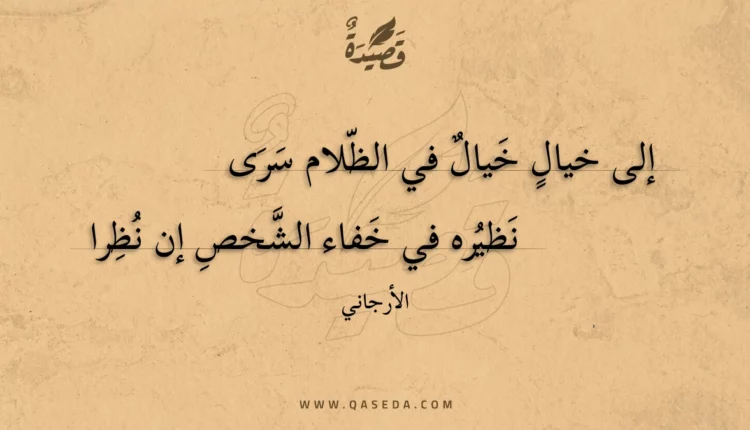 قَصِيْدَةٌ
إلى خيالٍ خَيالٌ في الظّلام سَرَى
نَظيُره في خَفاء الشَّخصِ إن نُظِرا
الأرجاني
WWW.QASEDA.COM